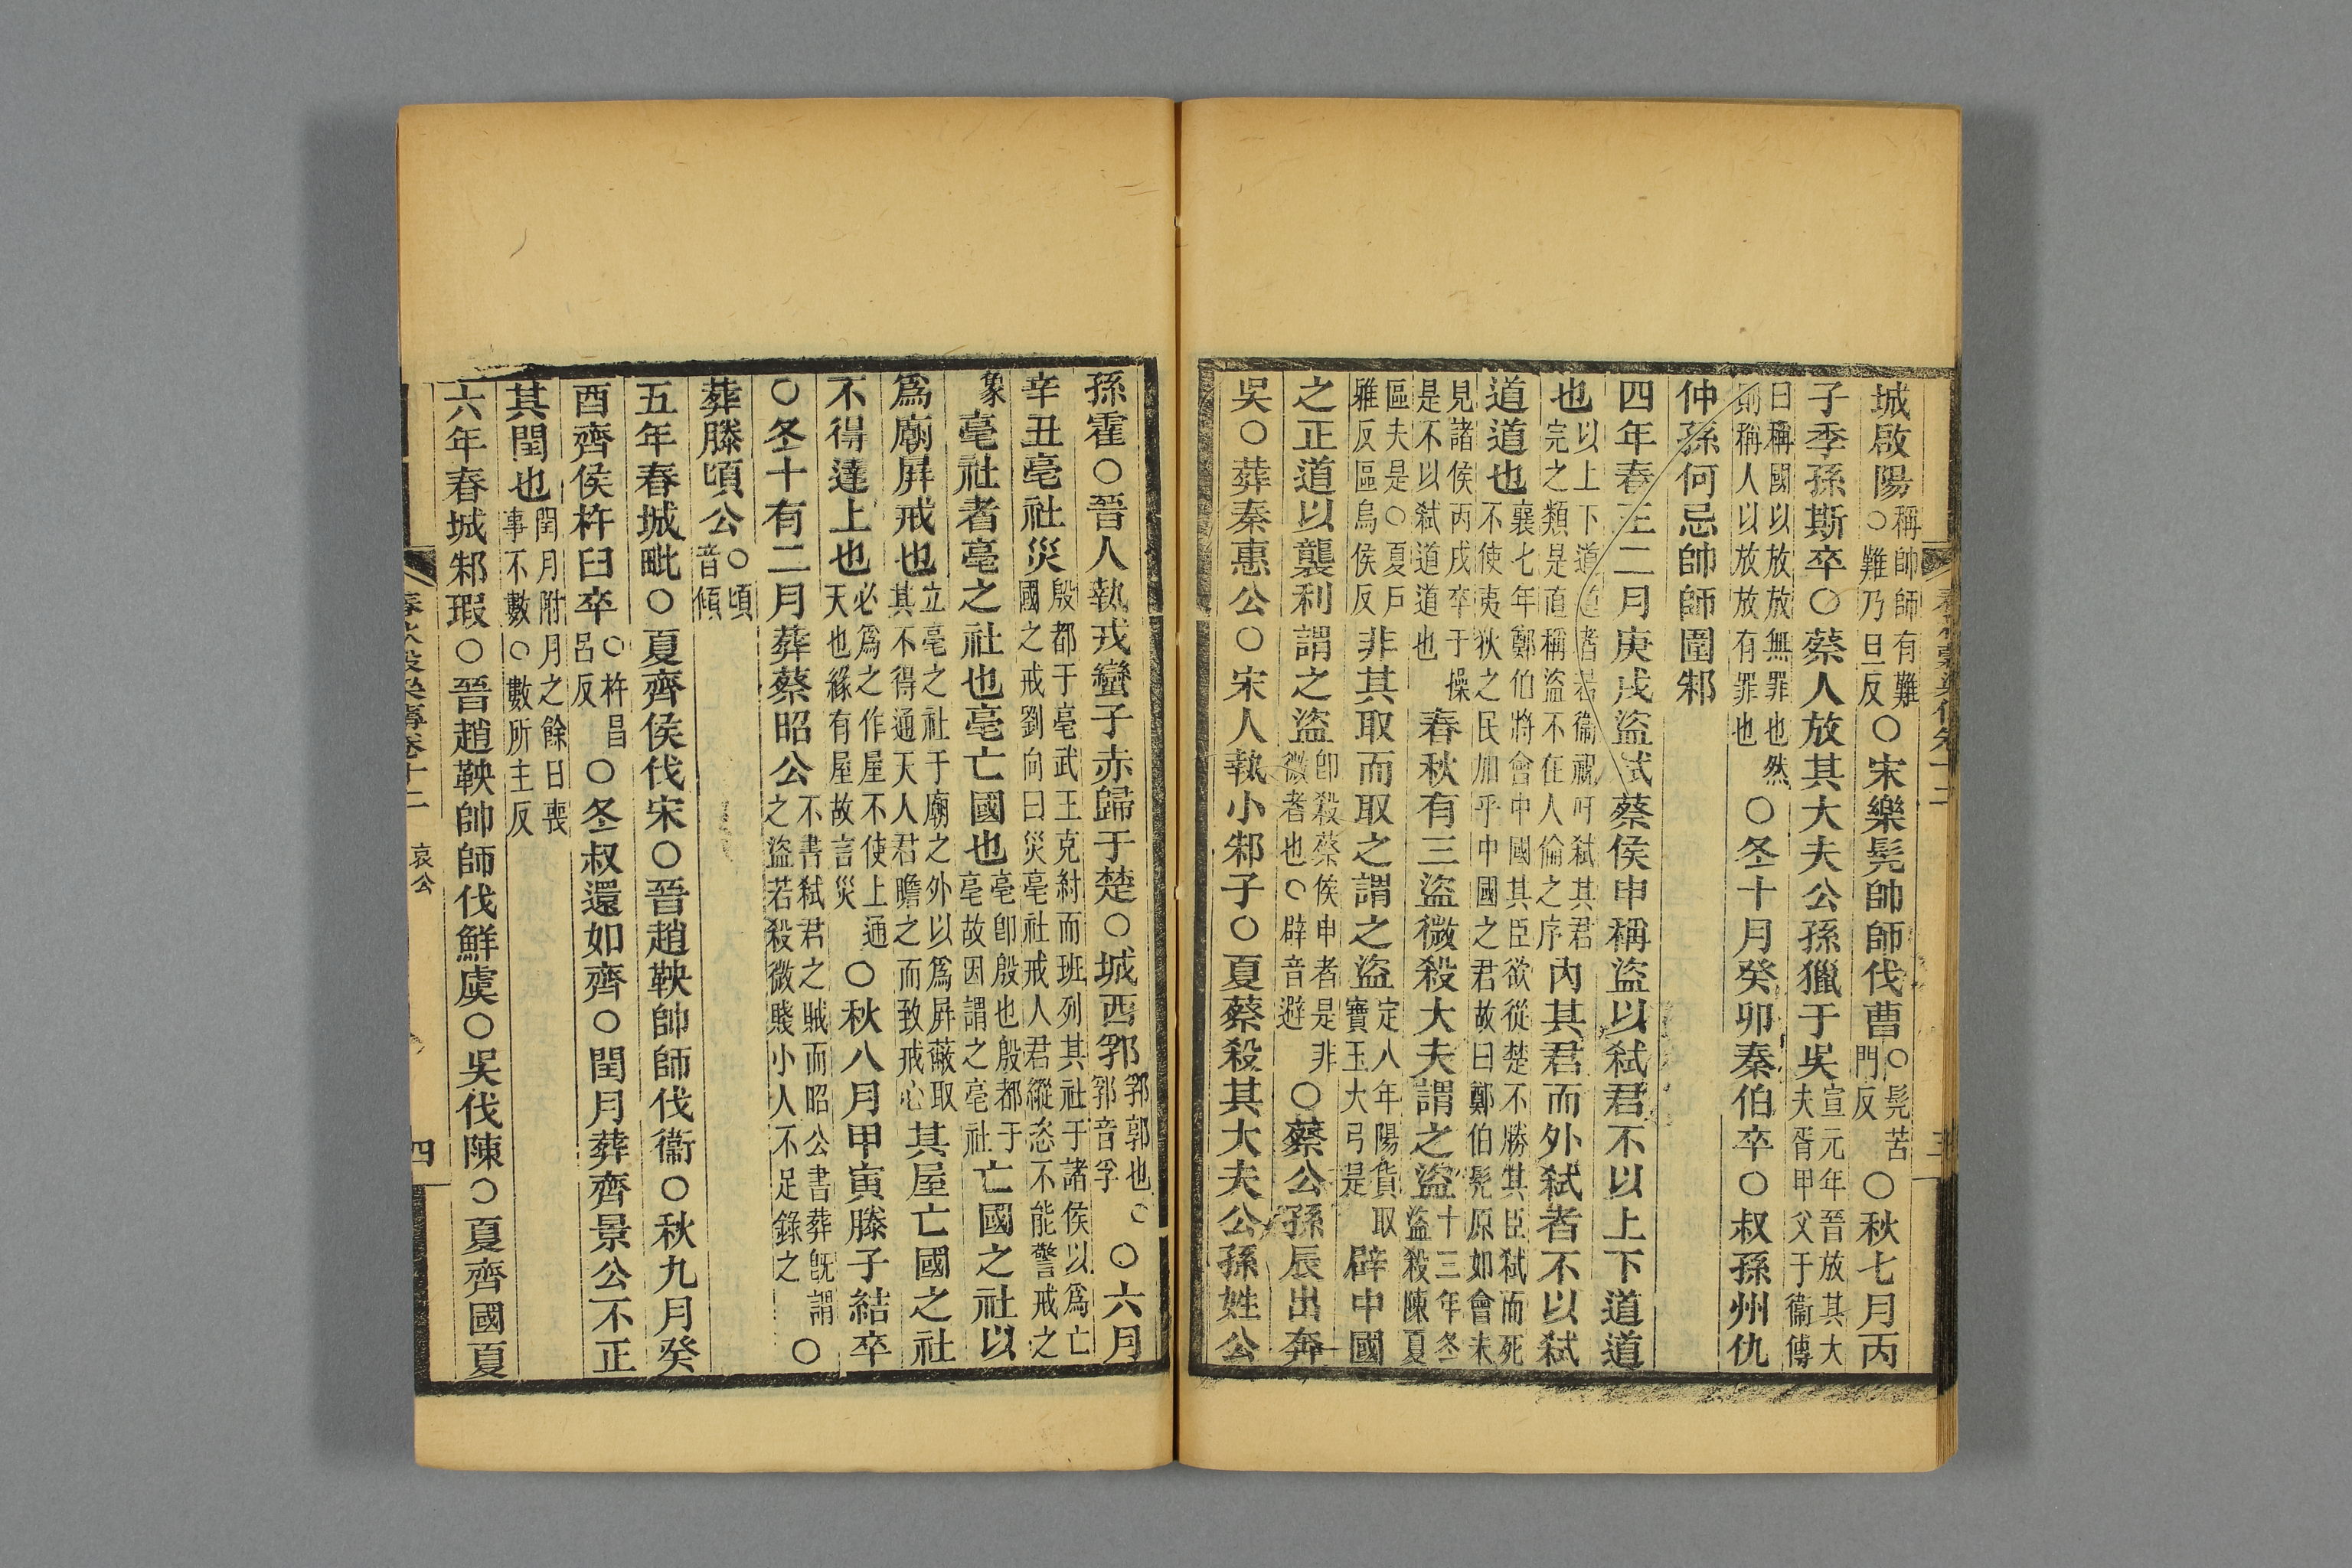 城啟陽稱帥師有難○難乃旦反○宋樂髡帥師伐曹○髡苦門反○秋七月丙
子季孫斯卒○蔡人放其大夫公孫獵于吳宣元年晉放其大夫胥甲父于衞傳
曰稱國以放放無罪也然則稱人以放放有罪也○冬十月癸卯秦伯卒○叔孫州仇
仲孫何忌帥師圍邾
四年春王二月庚戌盜弑蔡侯申稱盜以弑君不以上下道道
也以上下道道者若衞祝吁弑其君完之類是直稱盜不在人倫之序內其君而外弑者不以弑
道道也襄七年鄭伯將會中國其臣欲從楚不勝其臣弑而死不使夷狄之民加乎中國之君故曰鄭伯髡原如會未
見諸侯丙戌卒于操是不以弑道道也春秋有三盜微殺大夫謂之盜十三年冬盜殺陳夏
區夫是○夏戶雅反區烏侯反非其取而取之謂之盜定八年陽貨取寶玉大弓是辟中國
之正道以襲利謂之盜卽殺蔡侯申者是非微者也○辟音避○蔡公孫辰出奔
吳○葬秦惠公○宋人執小邾子○夏蔡殺其大夫公孫姓公
孫霍○晉人執戎蠻子赤歸于楚○城西郛郛郭也○郛音孚○六月
辛丑亳社災殷都于亳武王克紂而班列其社于諸侯以爲亡國之戒劉向曰災亳社戒人君縱恣不能警戒之
象亳社者亳之社也亳亡國也亳卽殷也殷都于亳故因謂之亳社亡國之社以
爲廟屛戒也立亳之社于廟之外以爲屛蔽取其不得通天人君瞻之而致戒心其屋亡國之社
不得達上也必爲之作屋不使上通天也緣有屋故言災○秋八月甲寅滕子結卒
○冬十有二月葬蔡昭公不書弑君之賊而昭公書葬旣謂之盜若殺微賤小人不足錄之○
葬滕頃公○頃音傾
五年春城毗○夏齊侯伐宋○晉趙鞅帥師伐衞○秋九月癸
酉齊侯杵臼卒○杵昌呂反○冬叔還如齊○閏月葬齊景公不正
其閏也閏月附月之餘日喪事不數○數所主反
六年春城邾瑕○晉趙鞅帥師伐鮮虞○吳伐陳○夏齊國夏
春秋穀梁傳卷十二 哀公 四